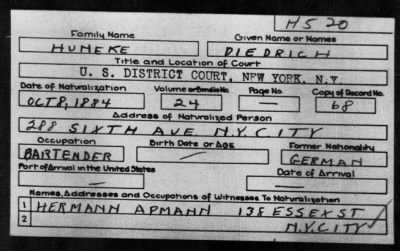 H520
Family Name Given Name or Names
HUNEKE DIEDRICH
Title and Location of Court
U. S. DISTRICT COURT, NEW YORK, N.Y.
Date of Naturalization Volume or Bundle No. Page No. Copy of Record No.
OCT 8, 1884 24 — 68
Address of Naturalized Person
288 SIXTH AVE N.Y. CITY
Occupation Birth Date or Age Former Nationality
BARTENDER — GERMAN
Port of Arrival in the United States Date of Arrival
— —
Names, Addresses and Occupations of Witnesses To Naturalization
1 HERMANN APMANN 138 ESSEX ST
2 N.Y. CITY